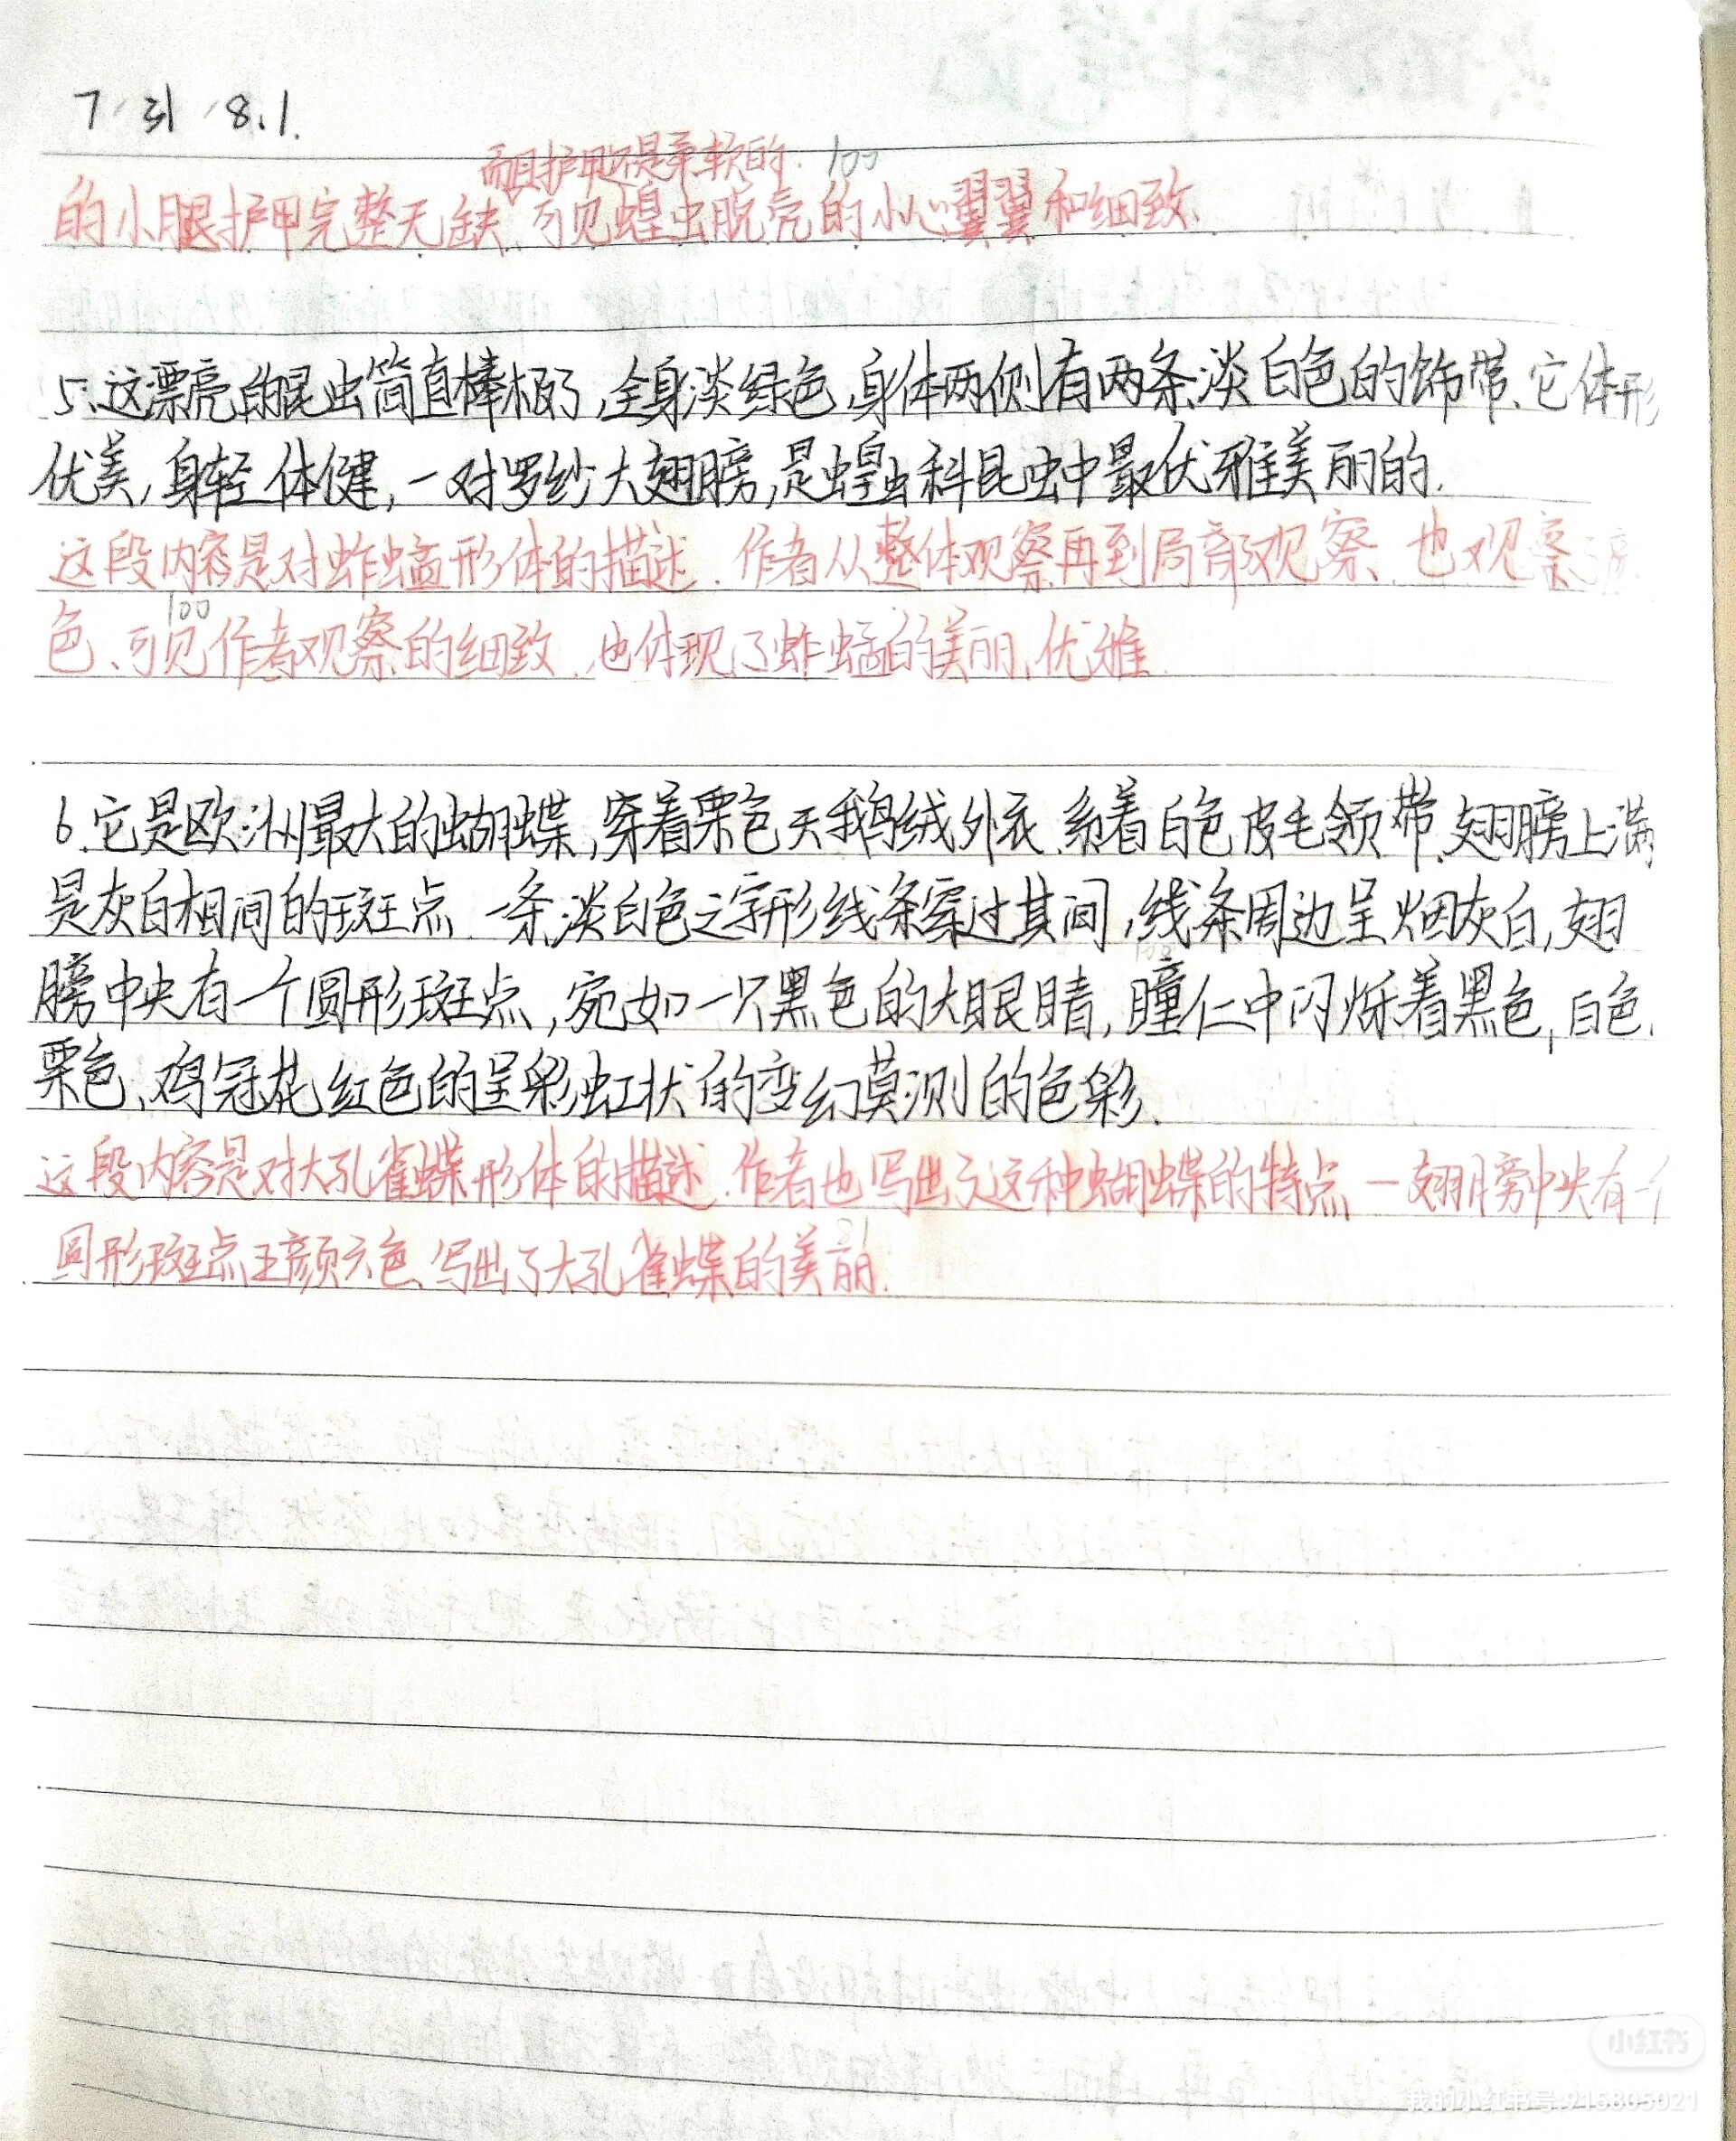 7/31/8.1.
而且护甲还是柔软的. 100
的小腿护甲完整无缺,可见蝗虫脱壳的小心翼翼和细致.
5.这漂亮的昆虫简直棒极了,全身淡绿色,身体两侧有两条淡白色的饰带.它体形
优美,身轻体健,一对罗纱大翅膀,是蝗虫科昆虫中最优雅美丽的.
这段内容是对蚱蜢形体的描述.作者从整体观察再到局部观察、也观察
100
色、可见作者观察的细致.也体现了蚱蜢的美丽、优雅.
6.它是欧洲最大的蝴蝶,穿着栗色天鹅绒外衣.系着白色皮毛领带.翅膀上满
是灰白相间的斑点.一条淡白色之字形线条穿过其间,线条周边呈烟灰白,翅
膀中央有一个圆形斑点,宛如一只黑色的大眼睛,瞳仁中闪烁着黑色,白色.
栗色、鸡冠花红色的呈彩虹状的变幻莫测的色彩.
这段内容是对大孔雀蝶形体的描述.作者也写出了这种蝴蝶的特点—翅膀中央有一个
圆形斑点五颜六色、写出了大孔雀蝶的美丽.
小红书
我的小红书号:915805021